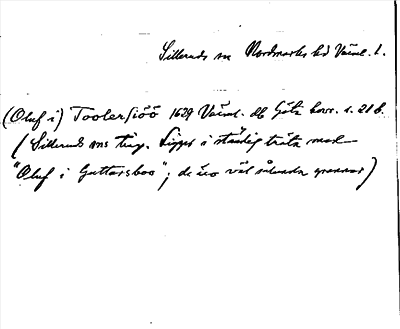 Silleruds sn Nordmarks hd Värml. l.
(Oluf i) Toolersiöö 1629 Värml. db Göta hovr. s. 21 b.
(Silleruds sns ting. Ligger i ständig träta med
"Oluf i Guttarsboo"; de äro väl sålunda grannar)